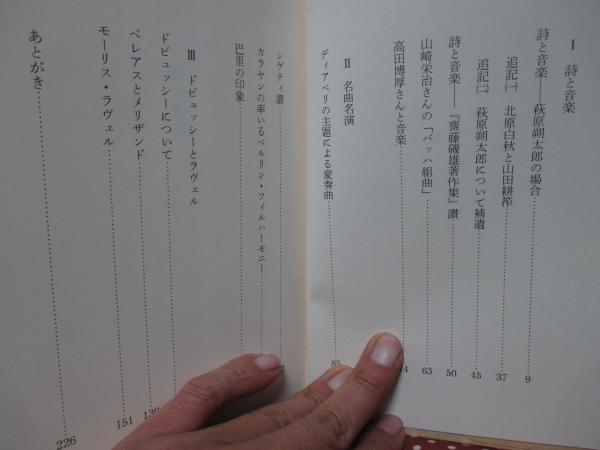 I 詩と音楽
詩と音楽――萩原朔太郎の場合 9
追記㈠ 北原白秋と山田耕筰 37
追記㈡ 萩原朔太郎について補遺 45
詩と音楽――『齋藤磯雄著作集』讃 50
山崎栄治さんの「バッハ組曲」 63
高田博厚さんと音楽 74
II 名曲名演
ディアベリの主題による変奏曲 85
シゲティ讃
カラヤンの率いるベルリン・フィルハーモニー
巴里の印象
III ドビュッシーとラヴェル
ドビュッシーについて
ペレアスとメリザンド
モーリス・ラヴェル 151
あとがき 226